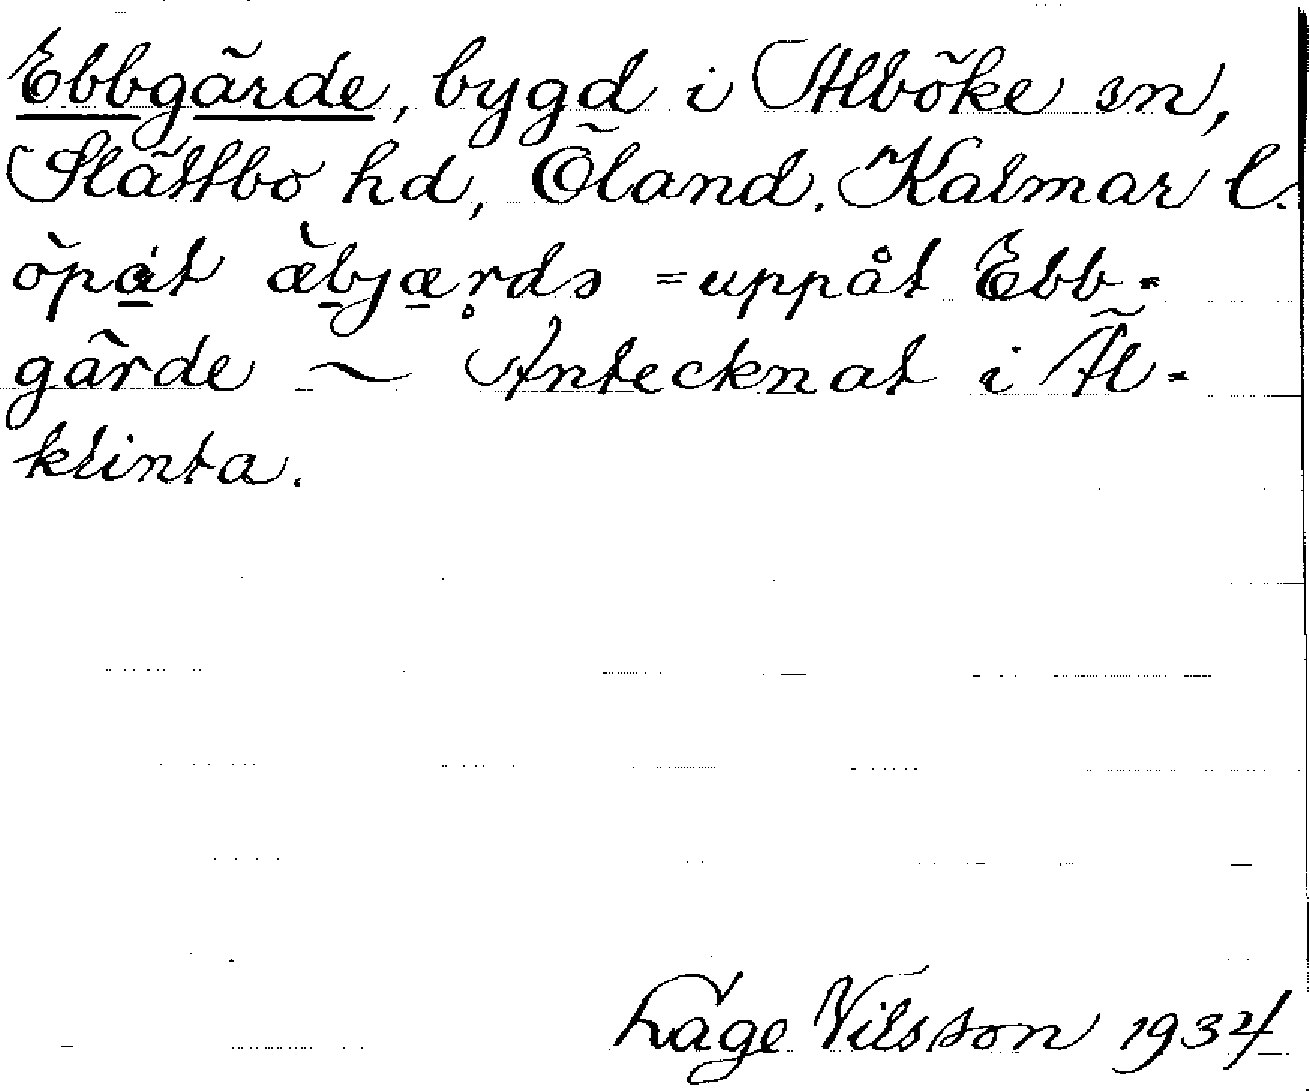 Ebbgärde, bygd i Alböke sn,
Slättbo hd, Öland. Kalmar l.
öpåt æbjærds = uppåt Ebb-
gärde ~ Antecknat i Äl-
klinta.
Låge Nilsson 1934